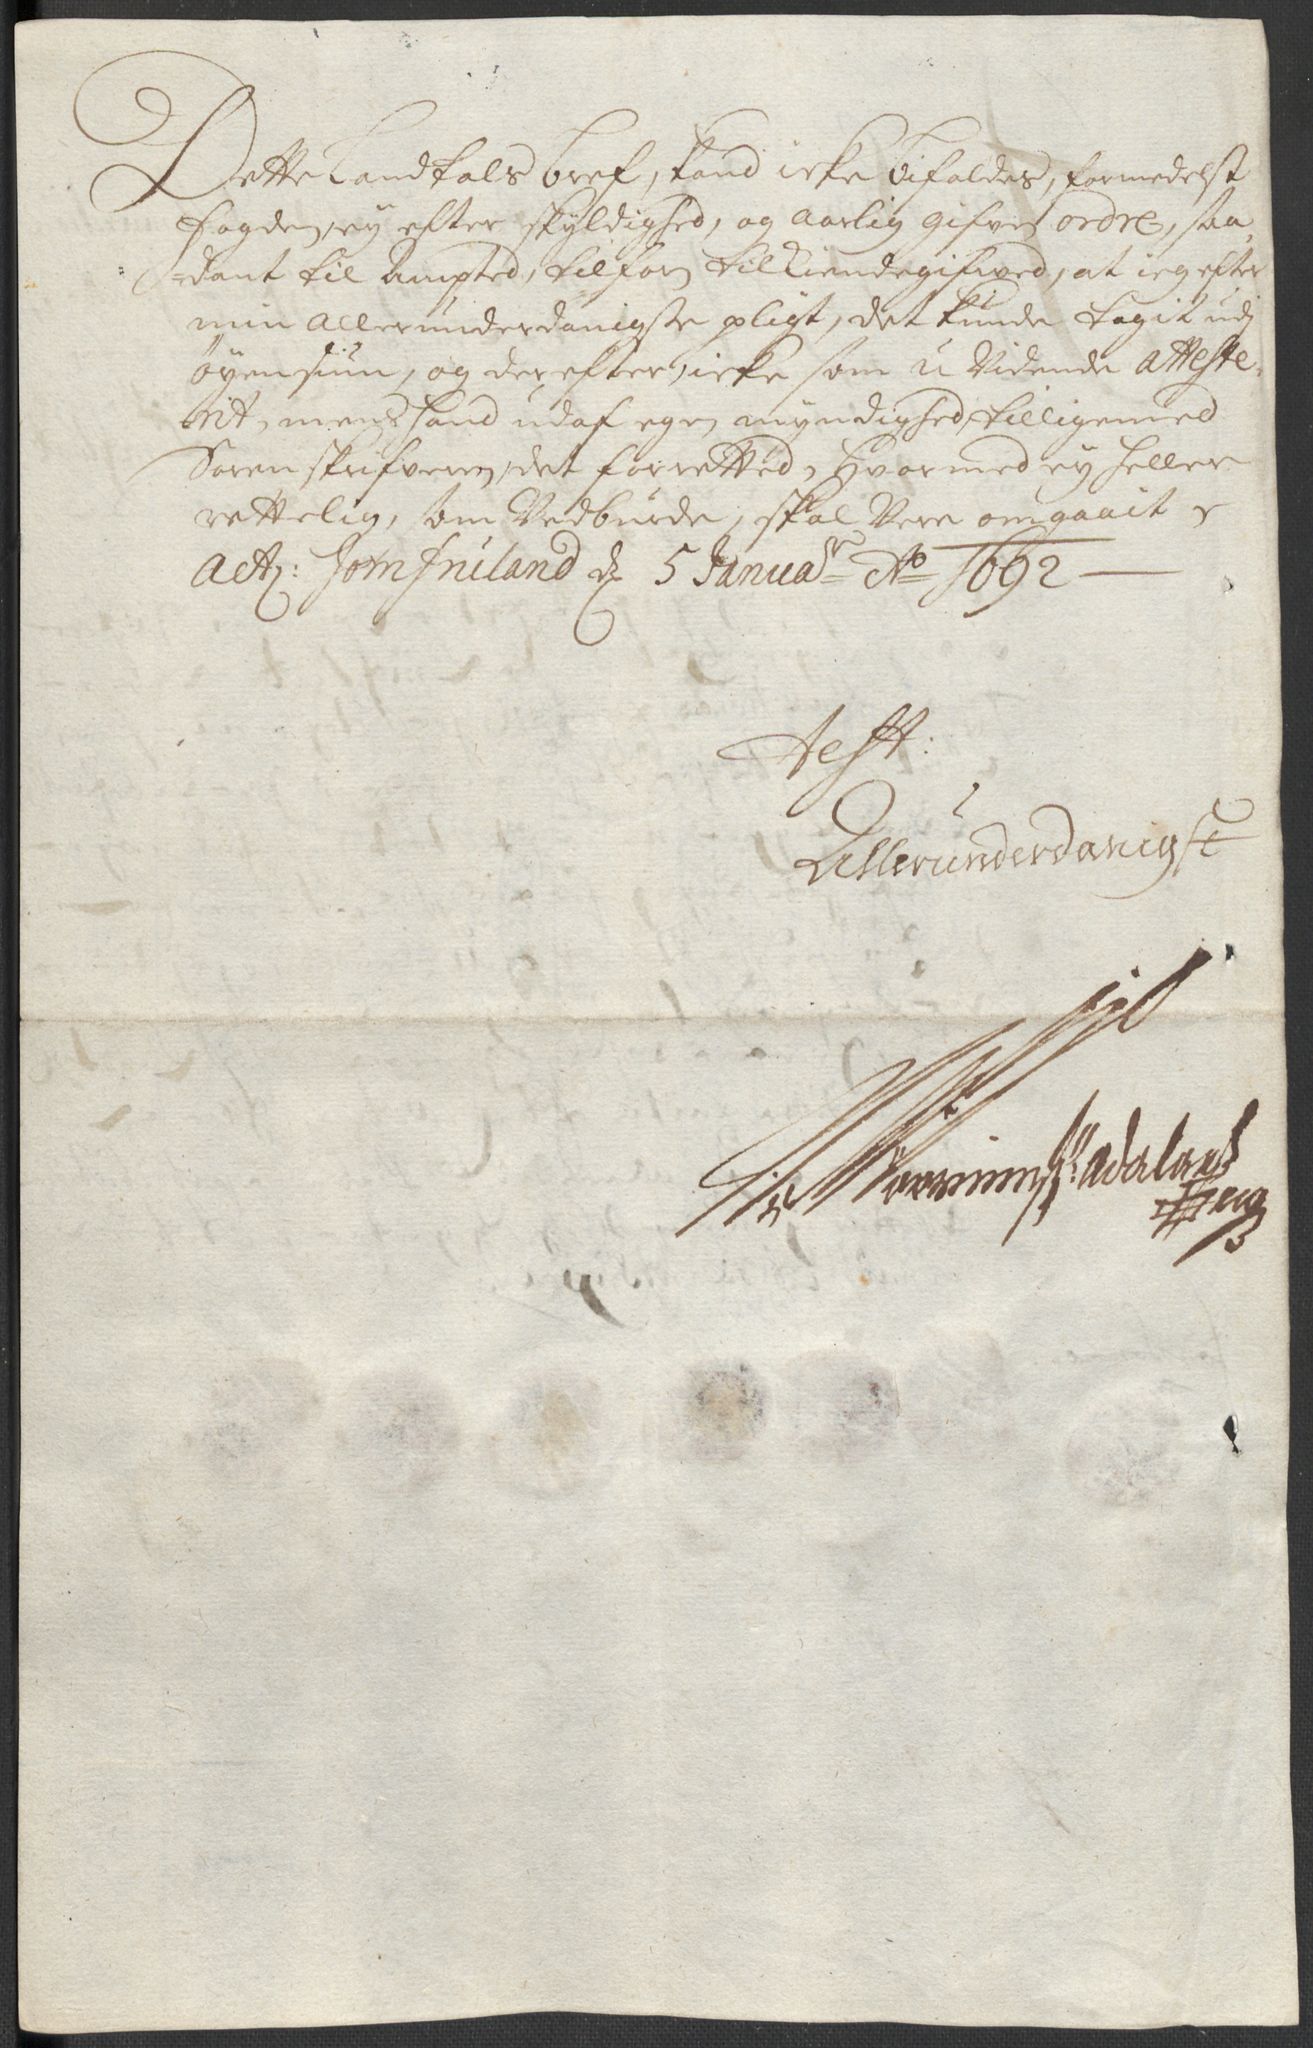 Dette Landtals bref, kand icke bifaldes, formedelst
fogden, ey efter skyldighed, og aarlig gifven ordre, saa¬
dant til Ampted, tilforn tilkiendegifwed, at ieg efter
min allerunderdanigste pligt, det kunde tagit udj
öyensiun, og derefter, icke som u Vidende atteste¬
rit, mens hand udaf egen myndighed, tilligemed
Sorenskrifveren, det forretted, hvormed ey heller
rettelig, som Vedburde, skal Vere omgaait
Act: Jomfruland d 5 Januar Ao 1692
Test:
Allerunderdanigst
Adeland